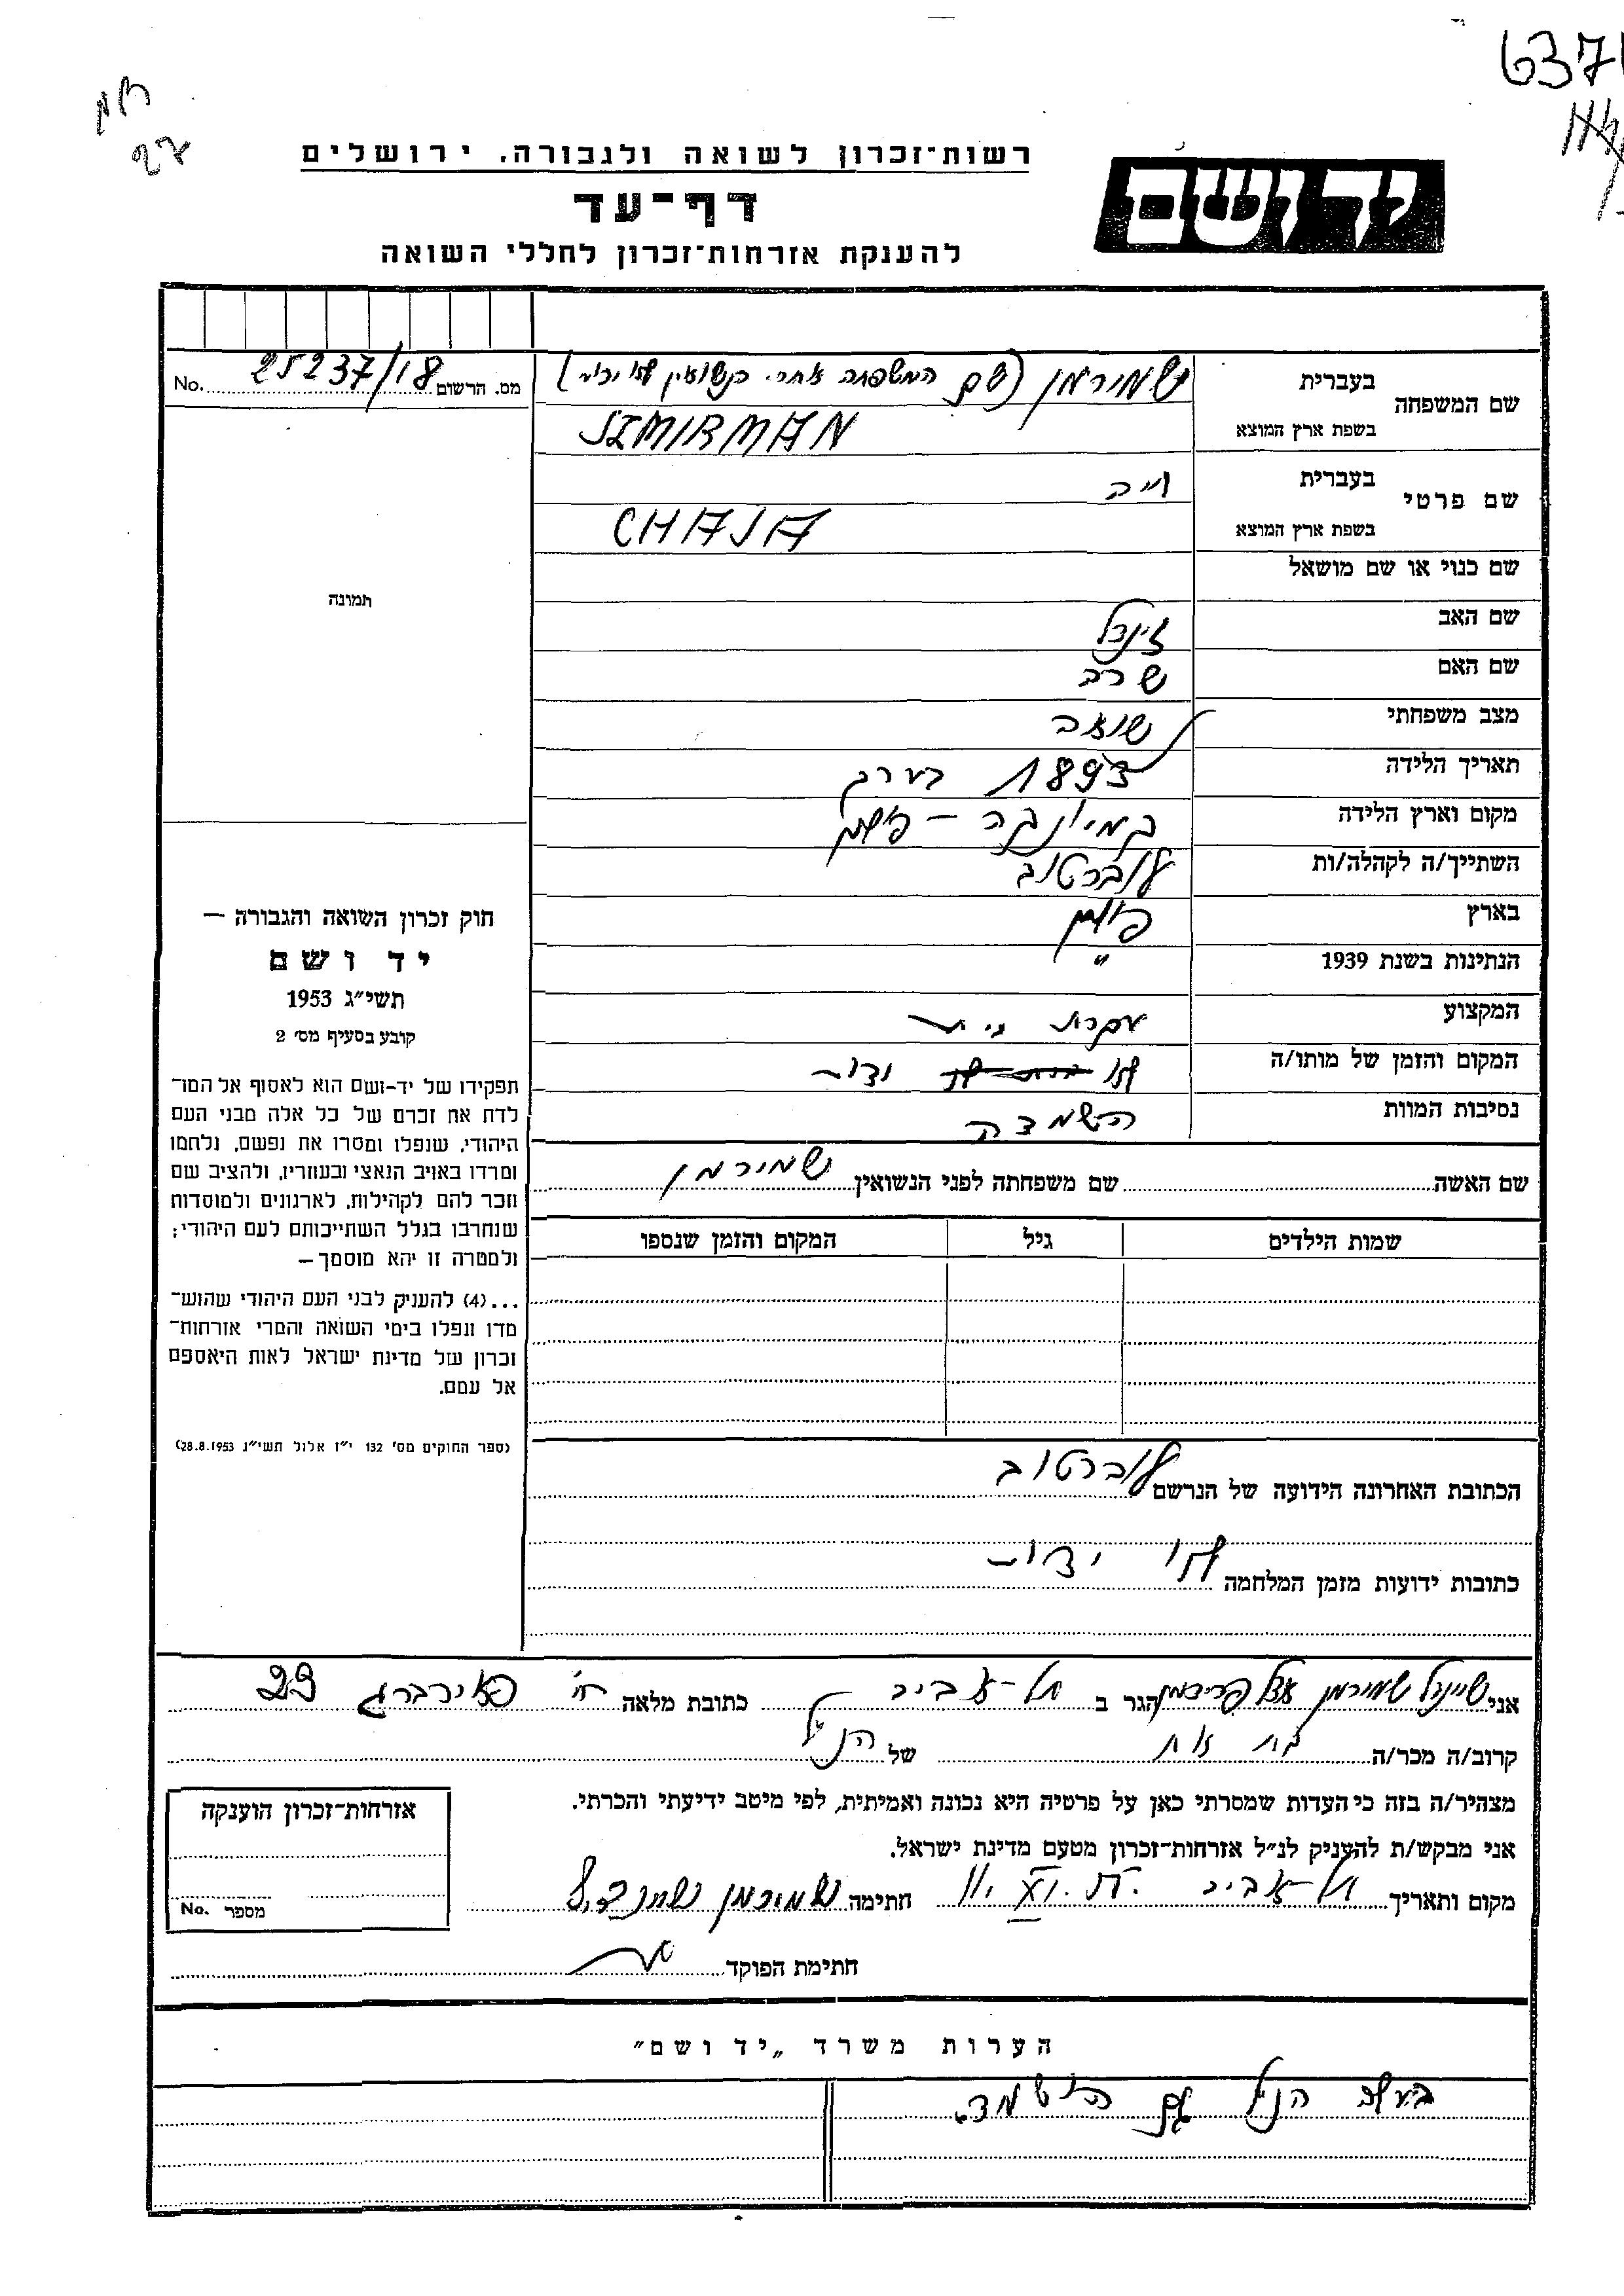 637
רשות־זכרון לשואה ולגבורה, ירושלים
יד ושם
דף־עד
להענקת אזרחות־זכרון לחללי השואה
No. 25237/18 מס. הרשום
שם המשפחה
בעברית שמירמן (שם המשפחה אחרי הנשואין לא ידוע)
בשפת ארץ המוצא SZMIRMAN
שם פרטי
בעברית חיה
בשפת ארץ המוצא CHAJA
תמונה
שם כנוי או שם מושאל
שם האב
שם האם שרה
מצב משפחתי נשואה
תאריך הלידה 1893 בערך
מקום וארץ הלידה פולין
השתייך/ה לקהלה/ות
בארץ פולין
הנתינות בשנת 1939 "
המקצוע עקרת בית
המקום והזמן של מותו/ה לא ידוע
נסיבות המוות הושמדה
שם האשה שם משפחתה לפני הנשואין שמירמן
שמות הילדים גיל המקום והזמן שנספו
חוק זכרון השואה והגבורה —
יד ושם
תשי״ג 1953
קובע בסעיף מס׳ 2
תפקידו של יד-ושם הוא לאסוף אל המו־
לדת את זכרם של כל אלה מבני העם
היהודי, שנפלו ומסרו את נפשם, נלחמו
ומרדו באויב הנאצי ובעוזריו, ולהציב שם
וזכר להם לקהילות, לארגונים ולמוסדות
שנחרבו בגלל השתייכותם לעם היהודי;
ולמטרה זו יהא מוסמך —
...(4) להעניק לבני העם היהודי שהוש־
מדו ונפלו בימי השואה והמרי אזרחות־
זכרון של מדינת ישראל לאות היאספם
אל עמם.
(ספר החוקים מס׳ 132 י״ז אלול תשי״ג 28.8.1953)
הכתובת האחרונה הידועה של הנרשם
כתובות ידועות מזמן המלחמה לא ידוע
אני שמירמן אצל הגר ב תל-אביב כתובת מלאה רח׳ 23
קרוב/ה מכר/ה בת אח של הנ״ל
מצהיר/ה בזה כי העדות שמסרתי כאן על פרטיה היא נכונה ואמיתית, לפי מיטב ידיעתי והכרתי.
אני מבקש/ת להעניק לנ״ל אזרחות־זכרון מטעם מדינת ישראל.
מקום ותאריך תל-אביב חתימה שמירמן
חתימת הפוקד
אזרחות־זכרון הוענקה
No. מספר
הערות משרד „יד ושם״
בעלה הנ״ל גם הושמד.